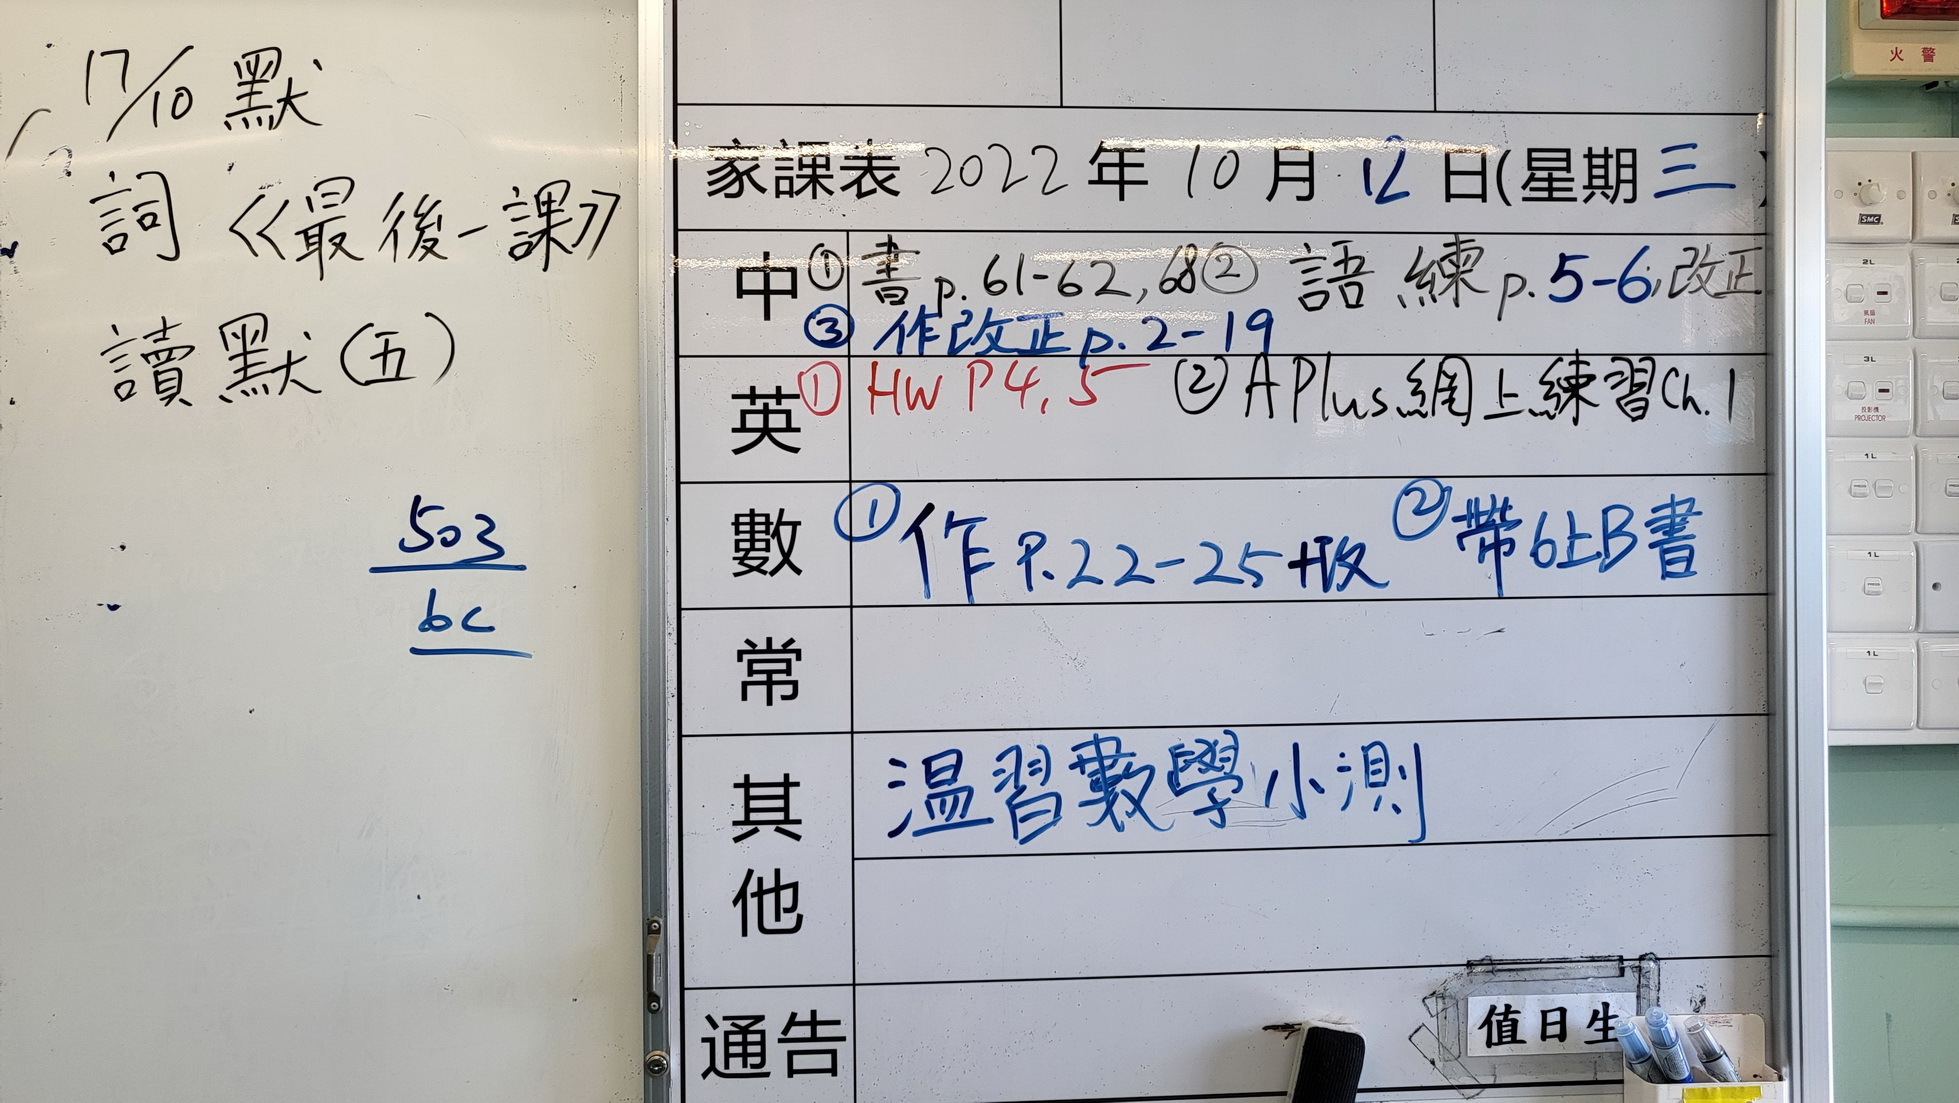 17/10 默
詞《最後一課》
讀默(五)
503
6C
家課表 2022 年 10 月 12 日(星期三)
中 ① 書 p. 61-62, 68 ② 語練 p. 5-6, 改正
③ 作改正 p. 2-19
英 ① HW P4, 5 ② A Plus 網上練習 Ch. 1
數 ① 作 P. 22-25+改 ② 帶6上B書
常
其他
温習數學小測
通告
值日生
火警
SMC
2L
風扇
FAN
3L
投影機
PROJECTOR
1L
1L
1L